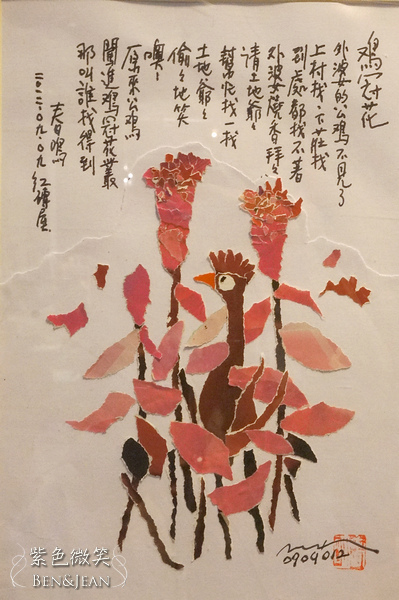 鸡冠花
外婆的公鸡不見了
上村找、下莊找
到處都找不着
外婆燒香拜々
請土地爺々
幫忙找一找
土地爺々
偷々地笑
噢、
原來公鸡
闖進鸡冠花叢
那叫誰找得到
二〇一二.〇九.〇九 紅磚屋
0909012
紫色微笑
BEN&JEAN